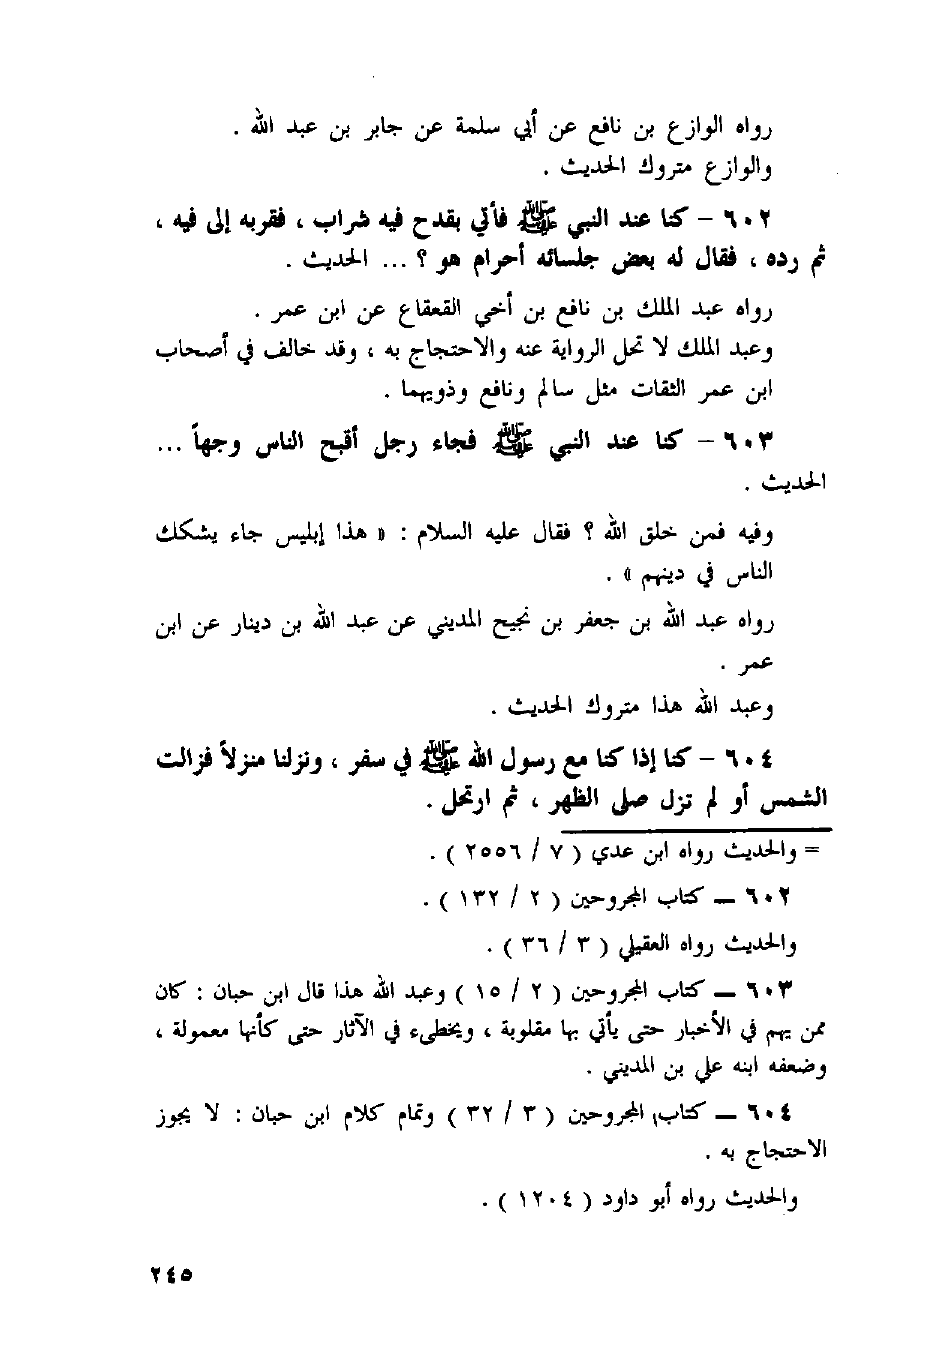 رواه الوازع بن نافع عن أبي سلمة عن جابر بن عبد الله .
والوازع متروك الحديث .
٦٠٢ – كنا عند النبي ﷺ فأتي بقدح فيه شراب ، فقربه إلى فيه ،
ثم رده ، فقال له بعض جلسائه أحرام هو ؟ ... الحديث .
رواه عبد الملك بن نافع بن أخي القعقاع عن ابن عمر .
وعبد الملك لا تحل الرواية عنه والاحتجاج به ، وقد خالف في أصحاب
ابن عمر الثقات مثل سالم ونافع وذويهما .
٦٠٣ – كنا عند النبي ﷺ فجاء رجل أقبح الناس وجهاً ...
الحديث .
وفيه فمن خلق الله ؟ فقال عليه السلام : « هذا إبليس جاء يشكك
الناس في دينهم » .
رواه عبد الله بن جعفر بن نجيح المديني عن عبد الله بن دينار عن ابن
عمر .
وعبد الله هذا متروك الحديث .
٦٠٤ – كنا إذا كنا مع رسول الله ﷺ في سفر ، ونزلنا منزلاً فزالت
الشمس أو لم تزل صلى الظهر ، ثم ارتحل .
= والحديث رواه ابن عدي ( ٧ / ٢٥٥٦ ) .
٦٠٢ – كتاب المجروحين ( ٢ / ١٣٢ ) .
والحديث رواه العقيلي ( ٣ / ٣٦ ) .
٦٠٣ – كتاب المجروحين ( ٢ / ١٥ ) وعبد الله هذا قال ابن حبان : كان
ممن يهم في الأخبار حتى يأتي بها مقلوبة ، ويخطىء في الآثار حتى كأنها معمولة ،
وضعفه ابنه علي بن المديني .
٦٠٤ – كتاب المجروحين ( ٣ / ٣٢ ) وتمام كلام ابن حبان : لا يجوز
الاحتجاج به .
والحديث رواه أبو داود ( ١٢٠٤ ) .
٢٤٥